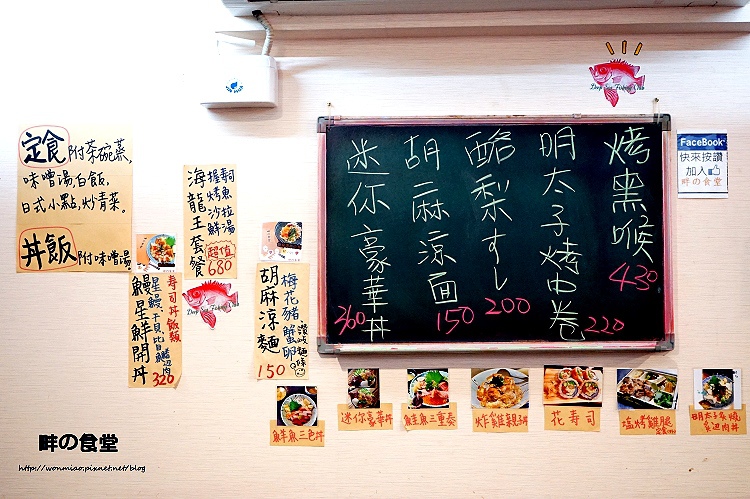 定食 附茶碗蒸,
味噌湯白飯,
日式小點,炒青菜。
丼飯 附味噌湯
海龍王套餐
握壽司
烤魚
沙拉
鮮湯
超值
680
壽司丼飯類
鰻星鮮開丼
320
胡麻涼麵
梅花豬蟹卵
150
Deep Sea Fishing Club
烤黑喉
430
明太子烤中卷
220
酪梨すし
200
胡麻涼面
150
迷你豪華丼
360
Deep Sea Fishing Club
FaceBook
快來按讚
加入
畔の食堂
鮮魚三色丼
迷你豪華丼
鮭主魚三重奏
炸雞親子丼
花壽司
塩烤雞腿
明太子炙燒
畔の食堂
http://wonmiao.pixnet.net/blog